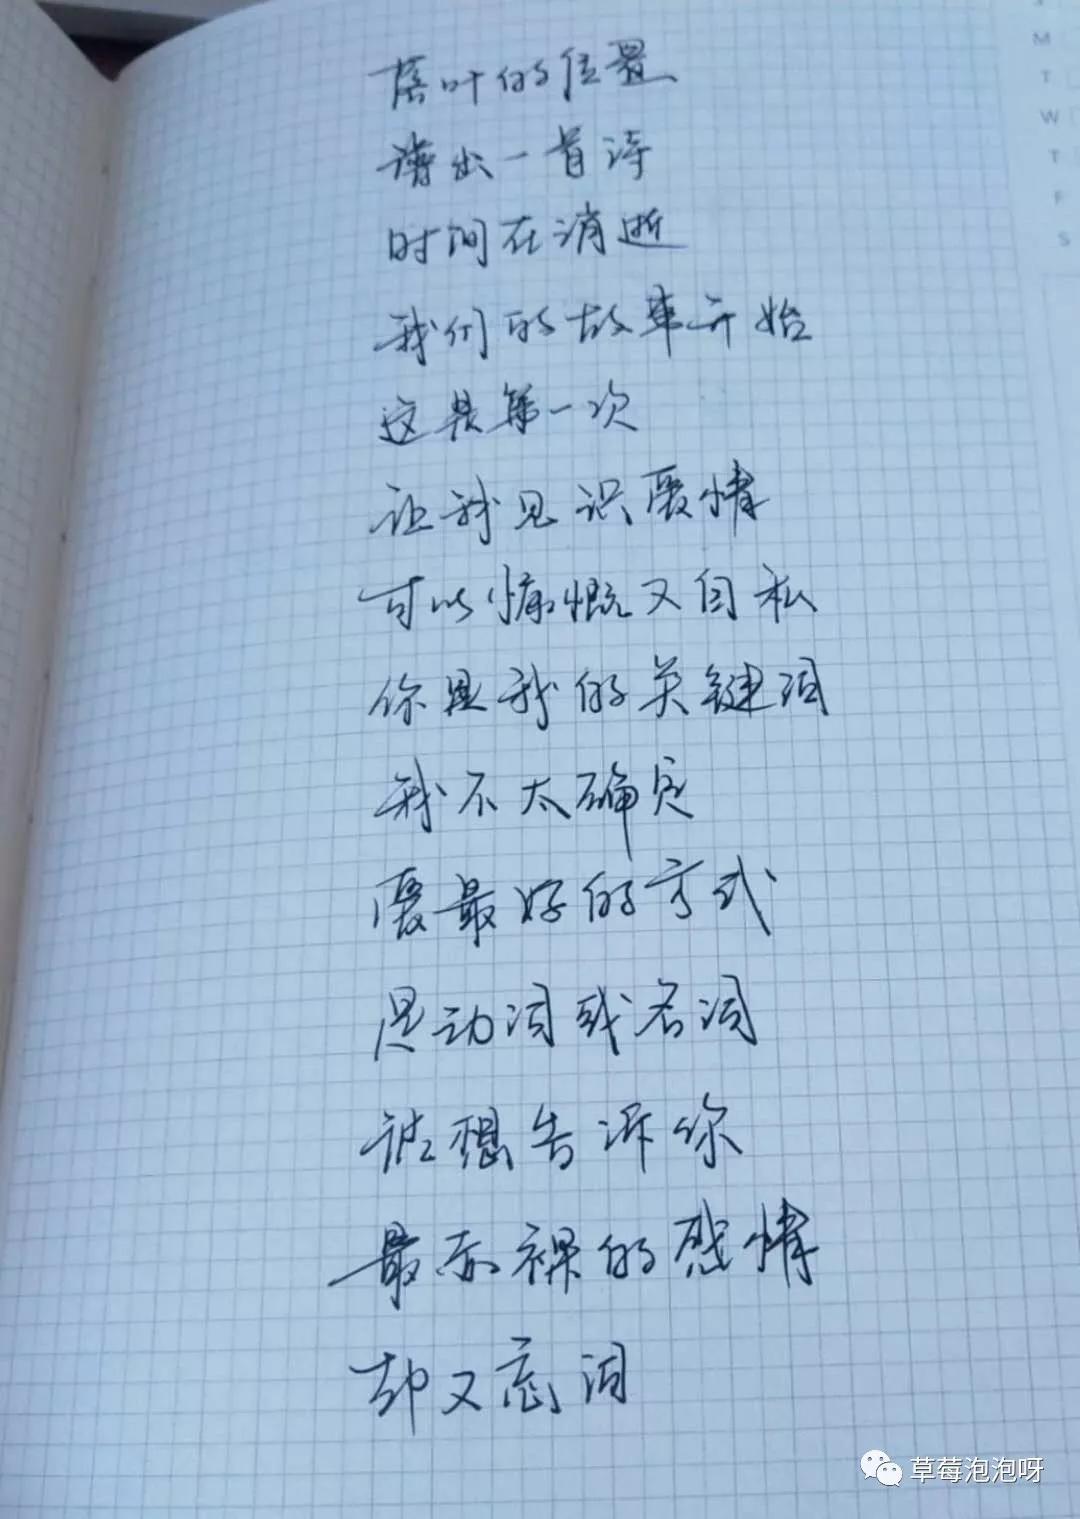 落叶的位置
谱出一首诗
时间在消逝
我们的故事开始
这是第一次
让我见识爱情
可以慷慨又自私
你是我的关键词
我不太确定
爱最好的方式
是动词或名词
很想告诉你
最赤裸的感情
却又忘词
M
T
W
T
F
S
草莓泡泡呀